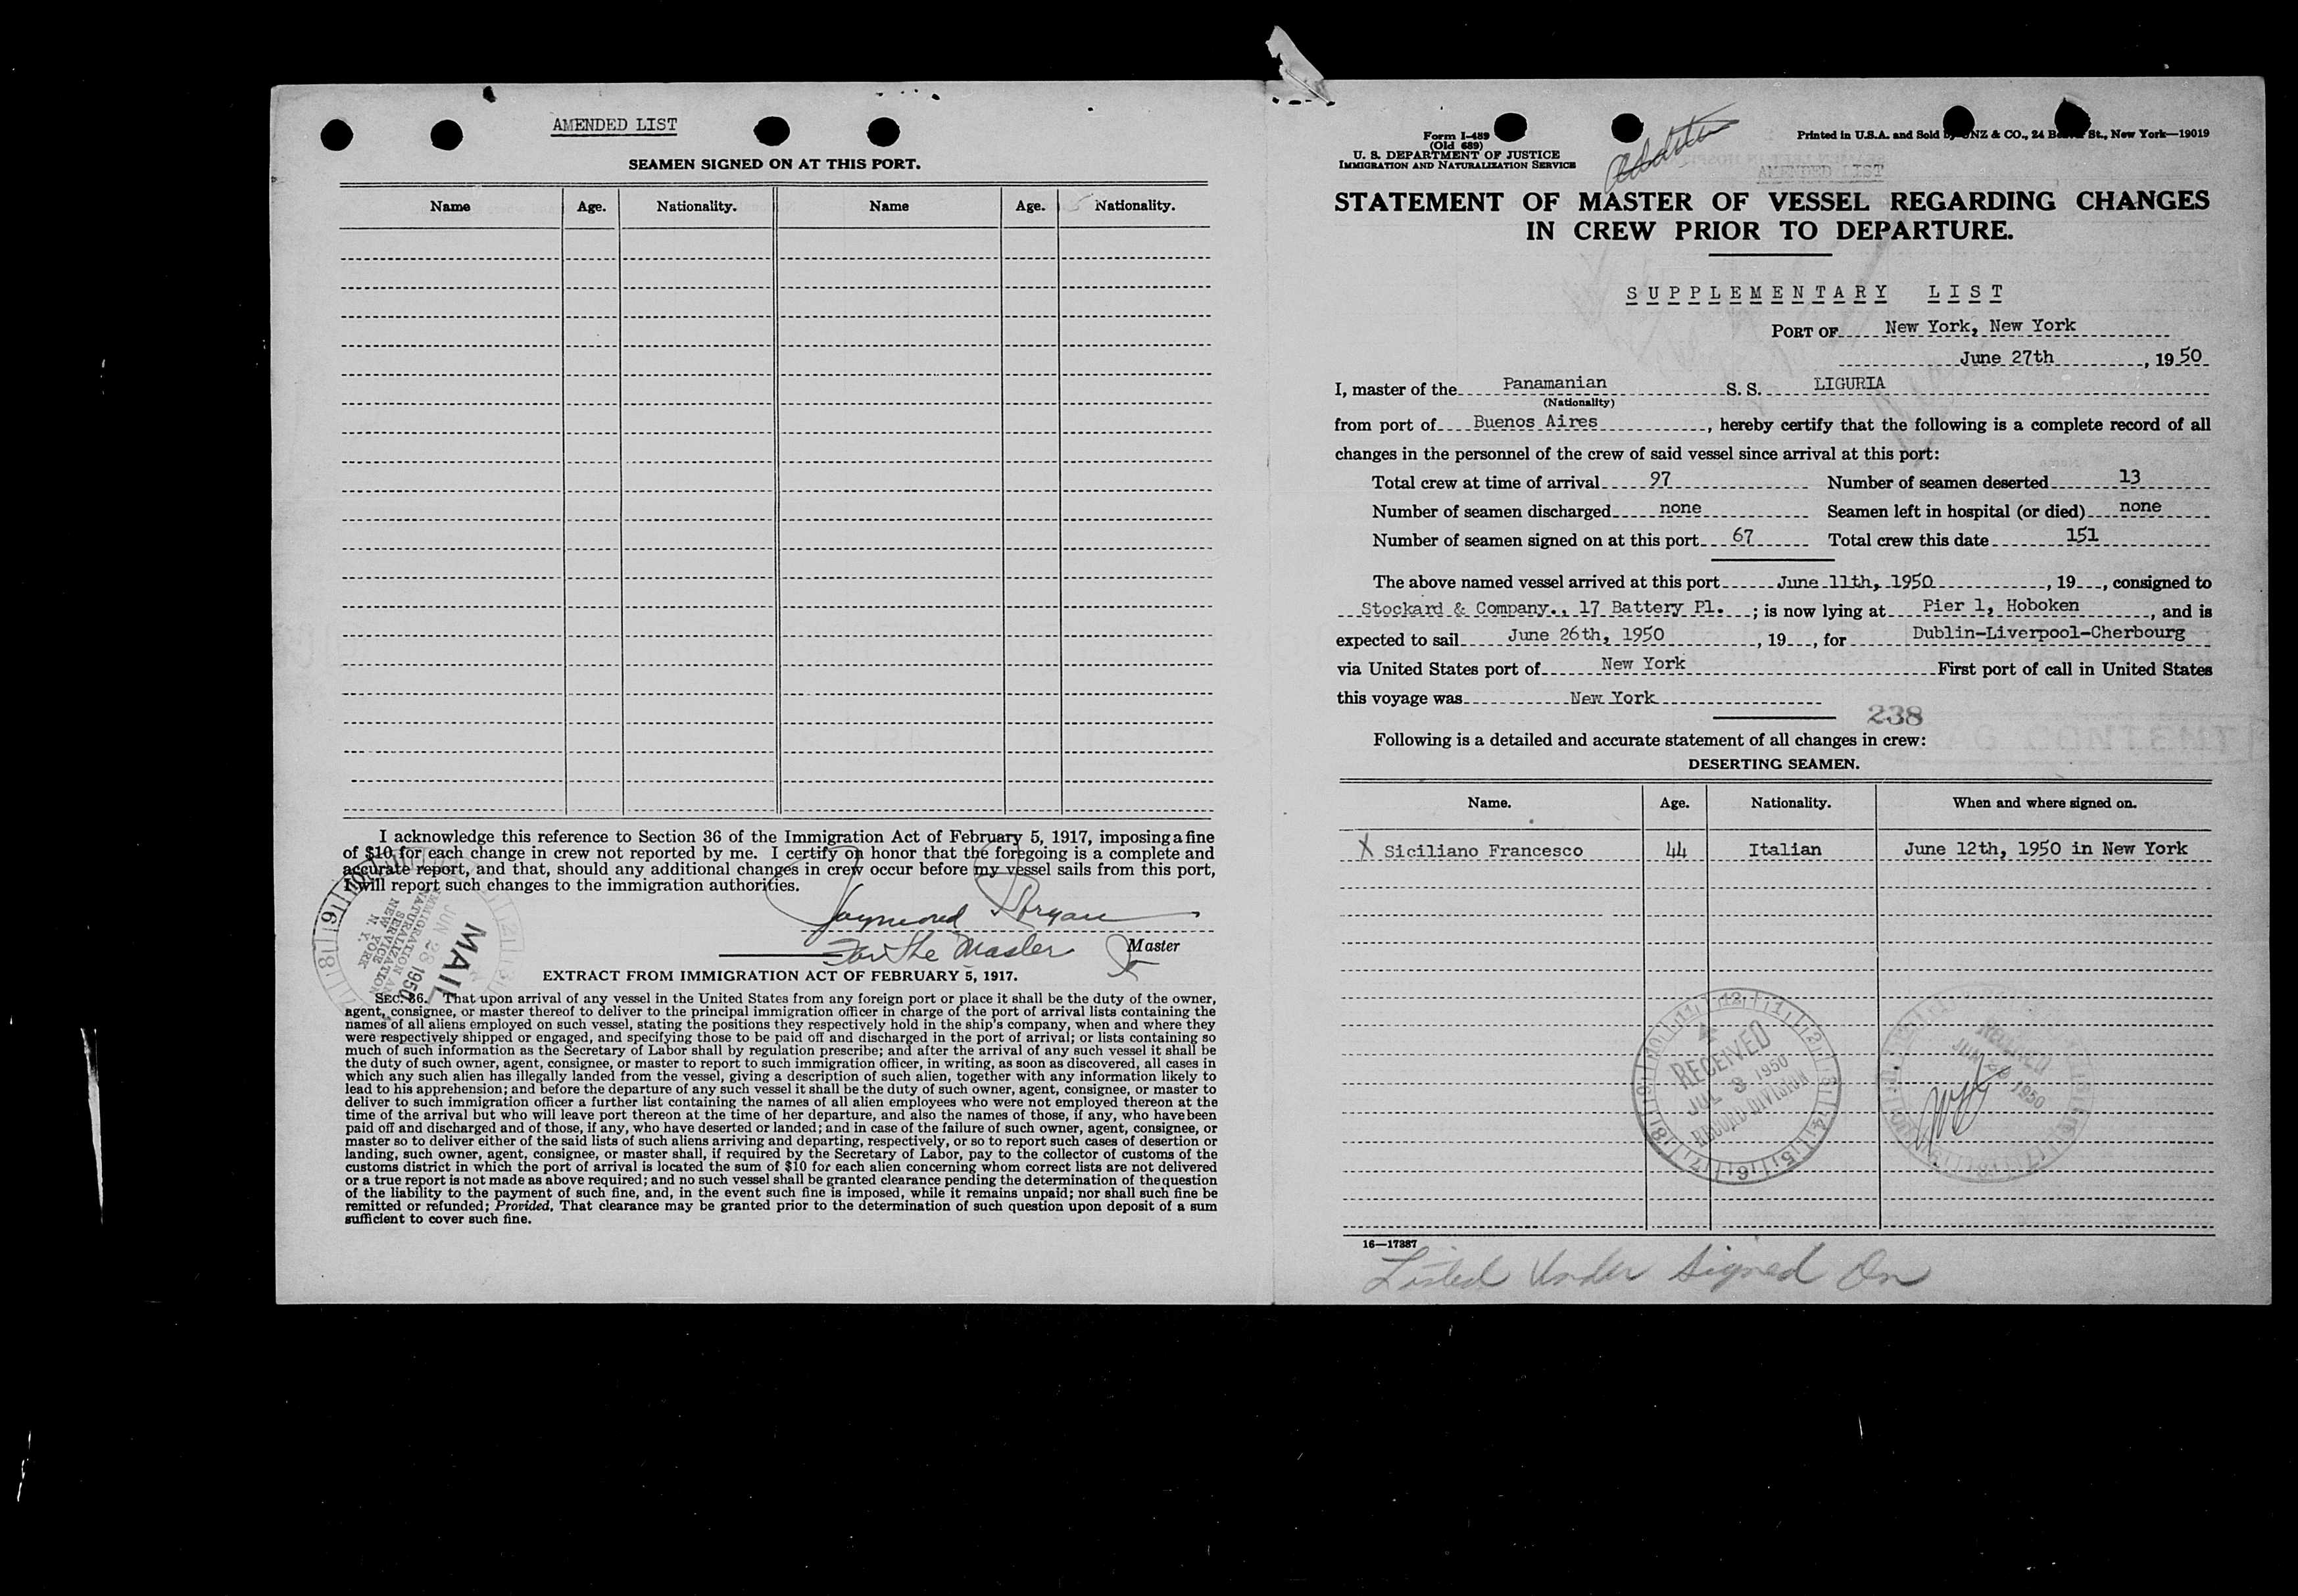 AMENDED LIST
SEAMEN SIGNED ON AT THIS PORT.
Name Age. Nationality. Name Age. Nationality.
I acknowledge this reference to Section 36 of the Immigration Act of February 5, 1917, imposing a fine
of $10 for each change in crew not reported by me. I certify on honor that the foregoing is a complete and
accurate report, and that, should any additional changes in crew occur before my vessel sails from this port,
I will report such changes to the immigration authorities.
For the Master Master
MAIL
JUN 28 1950
IMMIGRATION AND
NATURALIZATION
SERVICE
NEW YORK
N. Y.
EXTRACT FROM IMMIGRATION ACT OF FEBRUARY 5, 1917.
SEC. 36. That upon arrival of any vessel in the United States from any foreign port or place it shall be the duty of the owner,
agent, consignee, or master thereof to deliver to the principal immigration officer in charge of the port of arrival lists containing the
names of all aliens employed on such vessel, stating the positions they respectively hold in the ship's company, when and where they
were respectively shipped or engaged, and specifying those to be paid off and discharged in the port of arrival; or lists containing so
much of such information as the Secretary of Labor shall by regulation prescribe; and after the arrival of any such vessel it shall be
the duty of such owner, agent, consignee, or master to report to such immigration officer, in writing, as soon as discovered, all cases in
which any such alien has illegally landed from the vessel, giving a description of such alien, together with any information likely to
lead to his apprehension; and before the departure of any such vessel it shall be the duty of such owner, agent, consignee, or master to
deliver to such immigration officer a further list containing the names of all alien employees who were not employed thereon at the
time of the arrival but who will leave port thereon at the time of her departure, and also the names of those, if any, who have been
paid off and discharged and of those, if any, who have deserted or landed; and in case of the failure of such owner, agent, consignee, or
master so to deliver either of the said lists of such aliens arriving and departing, respectively, or so to report such cases of desertion or
landing, such owner, agent, consignee, or master shall, if required by the Secretary of Labor, pay to the collector of customs of the
customs district in which the port of arrival is located the sum of $10 for each alien concerning whom correct lists are not delivered
or a true report is not made as above required; and no such vessel shall be granted clearance pending the determination of the question
of the liability to the payment of such fine, and, in the event such fine is imposed, while it remains unpaid; nor shall such fine be
remitted or refunded; Provided, That clearance may be granted prior to the determination of such question upon deposit of a sum
sufficient to cover such fine.
Form I-489
(Old 689)
U. S. DEPARTMENT OF JUSTICE
IMMIGRATION AND NATURALIZATION SERVICE
Printed in U.S.A. and Sold by UNZ & CO., 24 Beaver St., New York—19019
AMENDED LIST
STATEMENT OF MASTER OF VESSEL REGARDING CHANGES
IN CREW PRIOR TO DEPARTURE.
SUPPLEMENTARY LIST
PORT OF New York, New York
June 27th, 1950
I, master of the Panamanian S. S. LIGURIA
(Nationality)
from port of Buenos Aires, hereby certify that the following is a complete record of all
changes in the personnel of the crew of said vessel since arrival at this port:
Total crew at time of arrival 97 Number of seamen deserted 13
Number of seamen discharged none Seamen left in hospital (or died) none
Number of seamen signed on at this port 67 Total crew this date 151
The above named vessel arrived at this port June 11th, 1950, 19, consigned to
Stockard & Company., 17 Battery Pl. ; is now lying at Pier 1, Hoboken, and is
expected to sail June 26th, 1950, 19, for Dublin-Liverpool-Cherbourg
via United States port of New York First port of call in United States
this voyage was New York
238
Following is a detailed and accurate statement of all changes in crew:
DESERTING SEAMEN.
Name. Age. Nationality. When and where signed on.
X Siciliano Francesco 44 Italian June 12th, 1950 in New York
RECEIVED
JUL 3 1950
RECORD DIVISION
RECEIVED
JUN 29 1950
16—17387
Listed Under Signed On